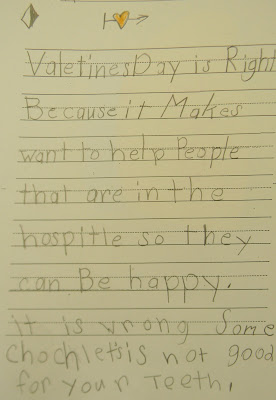 Valetines Day is Right
Because it Makes
want to help People
that are in the
hospitle so they
can Be happy.
it is wrong Some
chochlets is not good
for your Teeth.